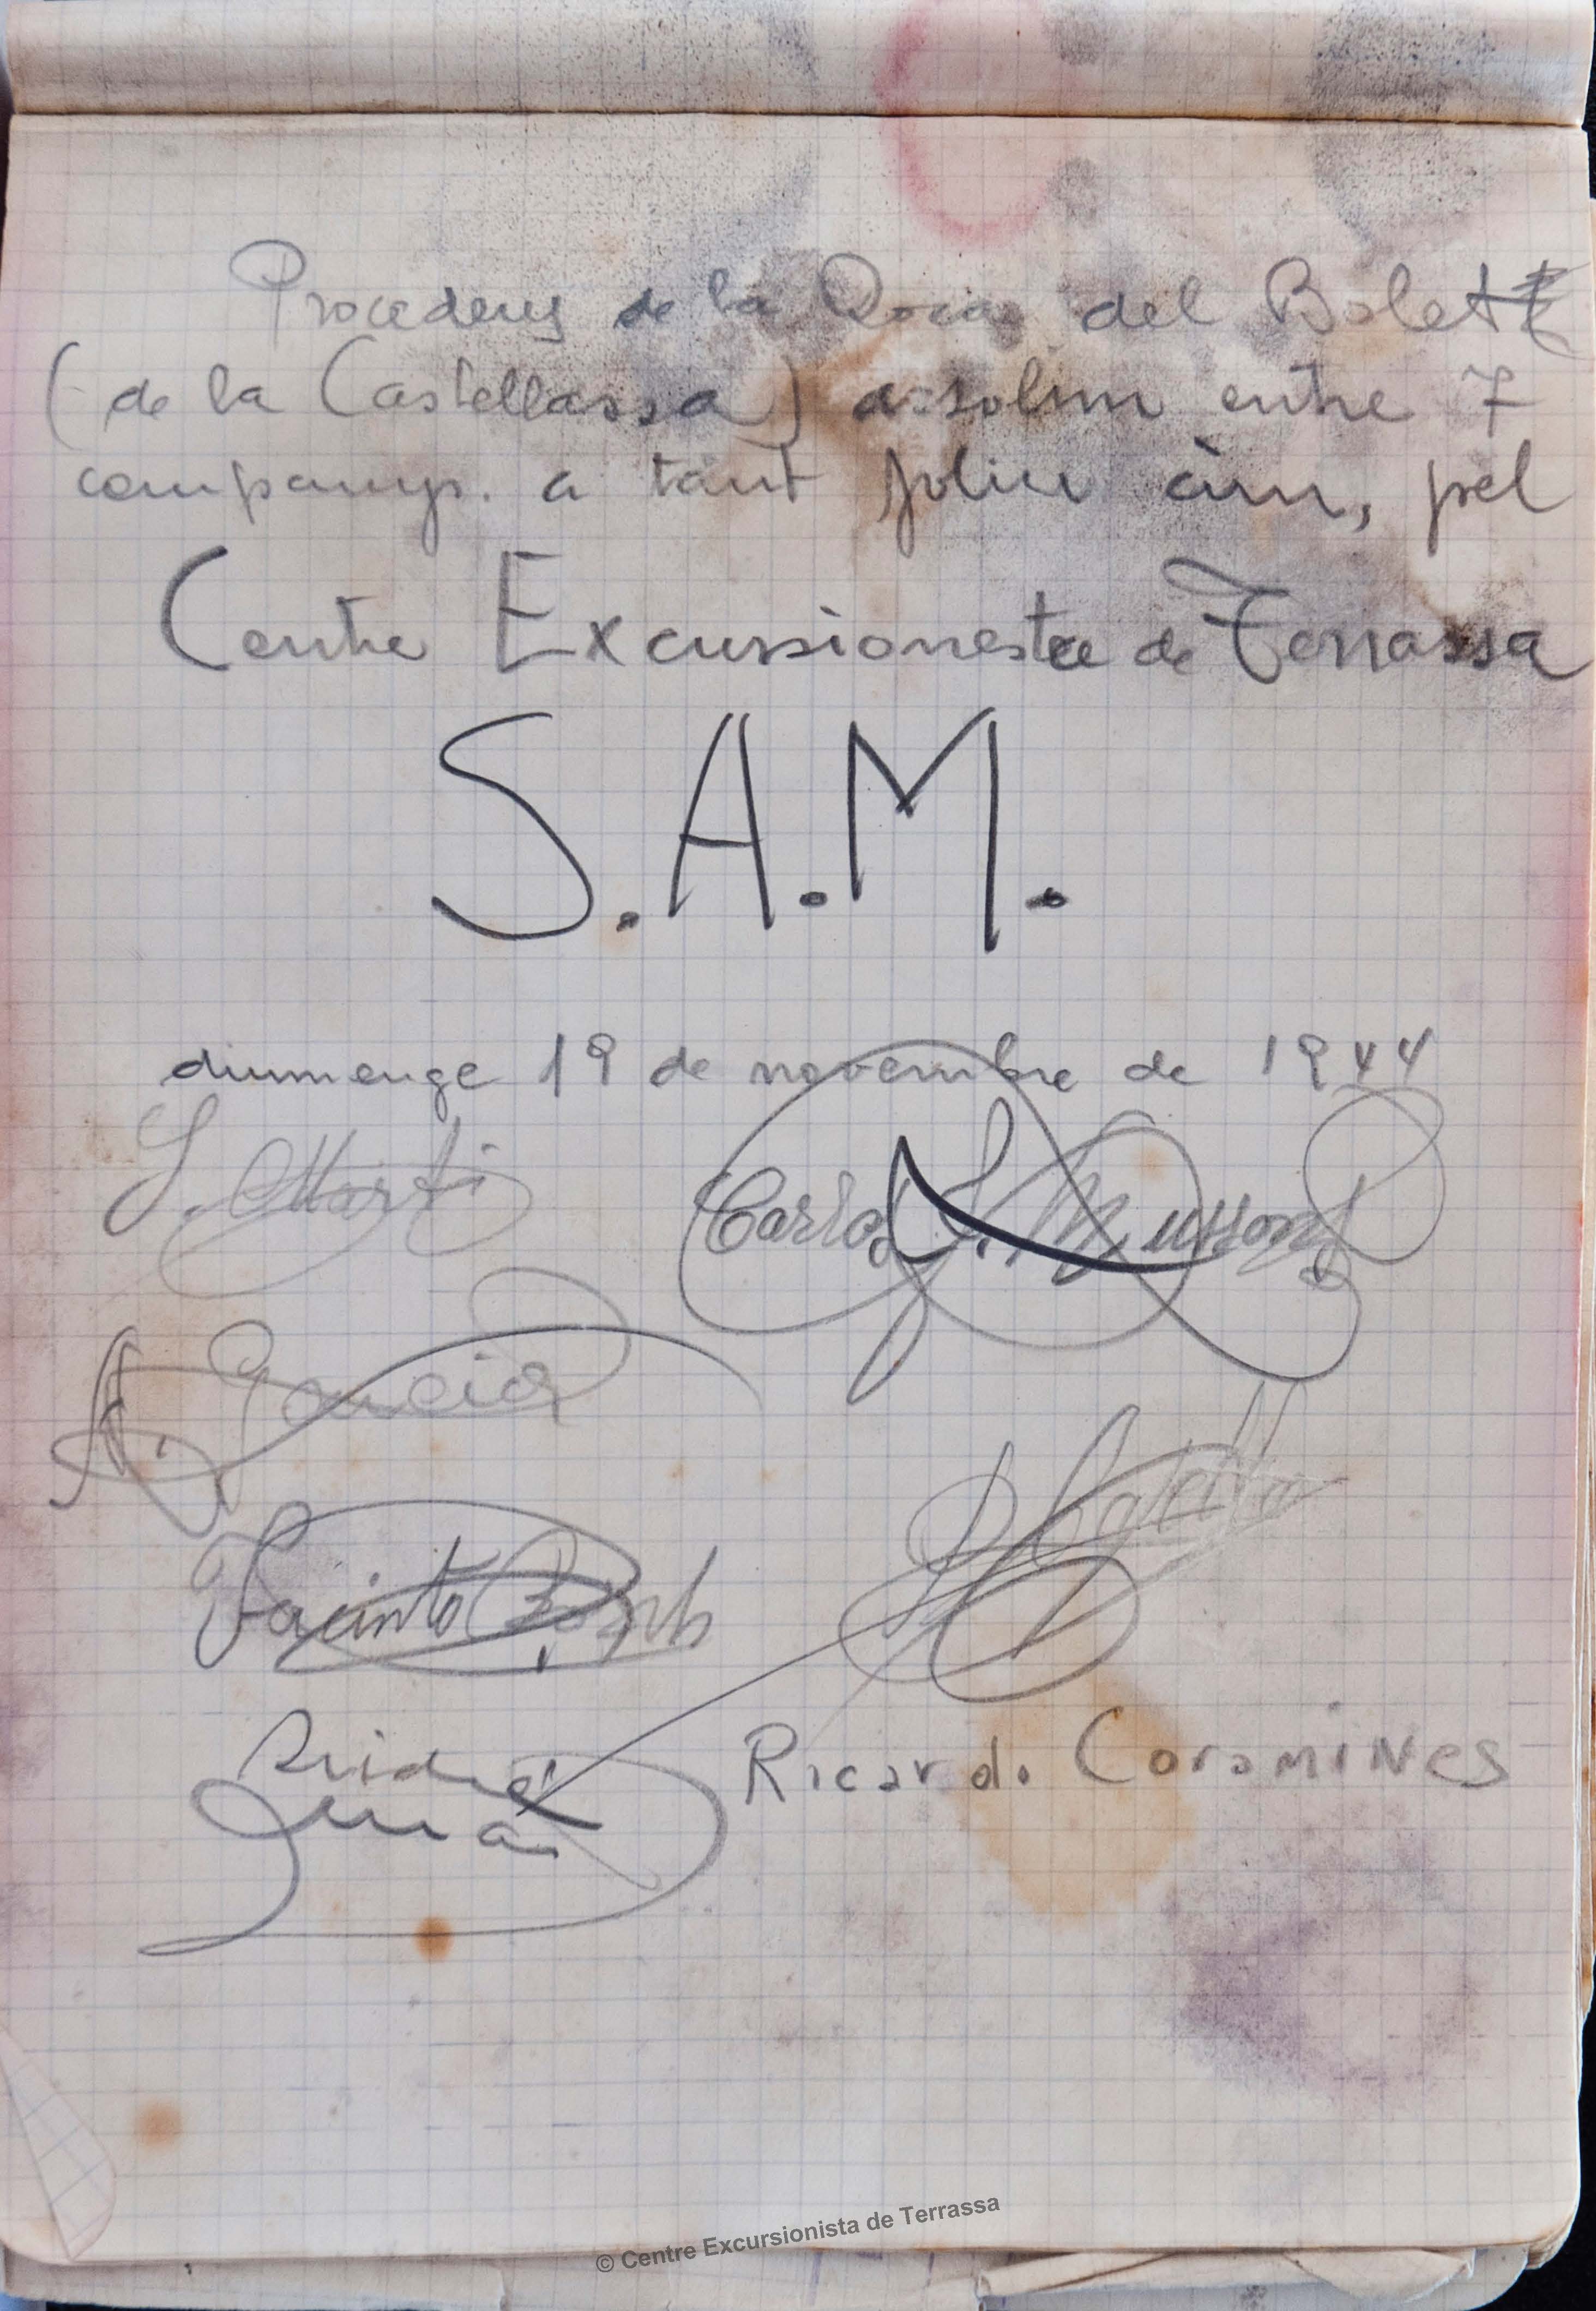 Procedens de la Roca del Bolet
(de la Castellassa) assolim entre 7
companys. a tant joliu cim, pel
Centre Excursionista de Terrassa
S.A.M.
diumenge 19 de novembre de 1944
J. Martí
Carlos J. Mussons
A. Garcia
Jacinto Bosch
Ricard. Coromines
© Centre Excursionista de Terrassa